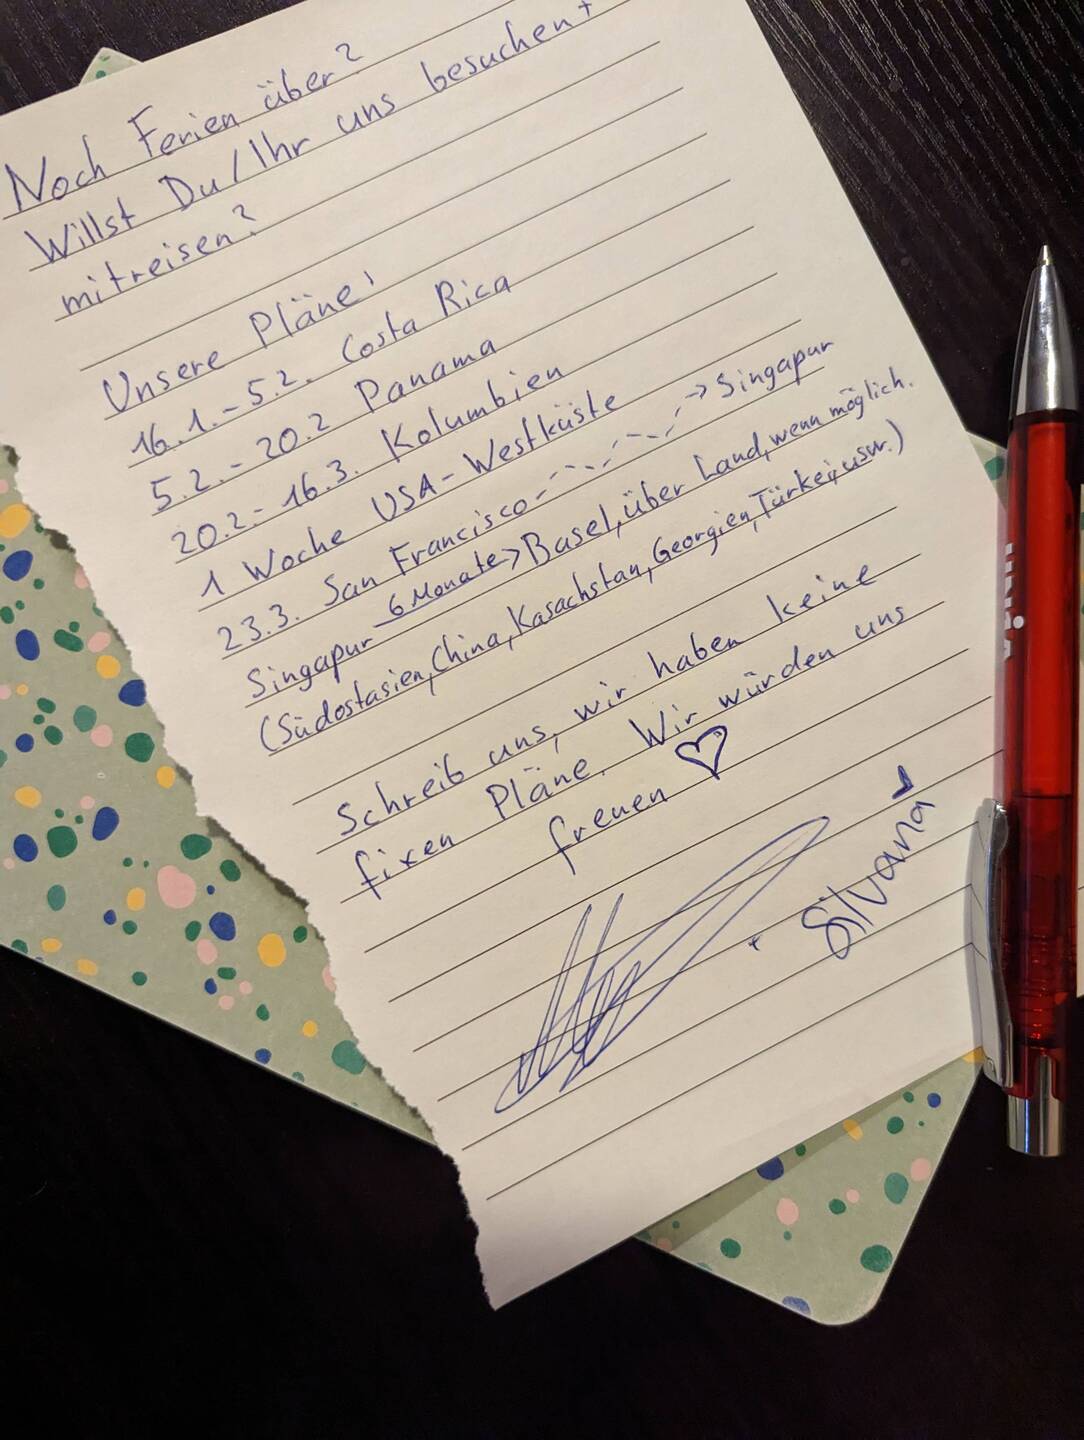 Noch Ferien über?
Willst Du/Ihr uns besuchen +
mitreisen?
Unsere Pläne:
16.1. - 5.2. Costa Rica
5.2. - 20.2 Panama
20.2. - 16.3. Kolumbien
1 Woche USA-Westküste
23.3. San Francisco -----> Singapur
Singapur 6 Monate> Basel, über Land, wenn möglich.
(Südostasien, China, Kasachstan, Georgien, Türkei, usw.)
Schreib uns, wir haben keine
fixen Pläne. Wir würden uns
freuen ♡
+ Silvana